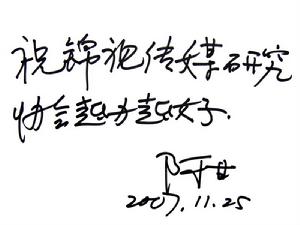 祝锦旎传媒研究
协会越办越好.
2007.11.25